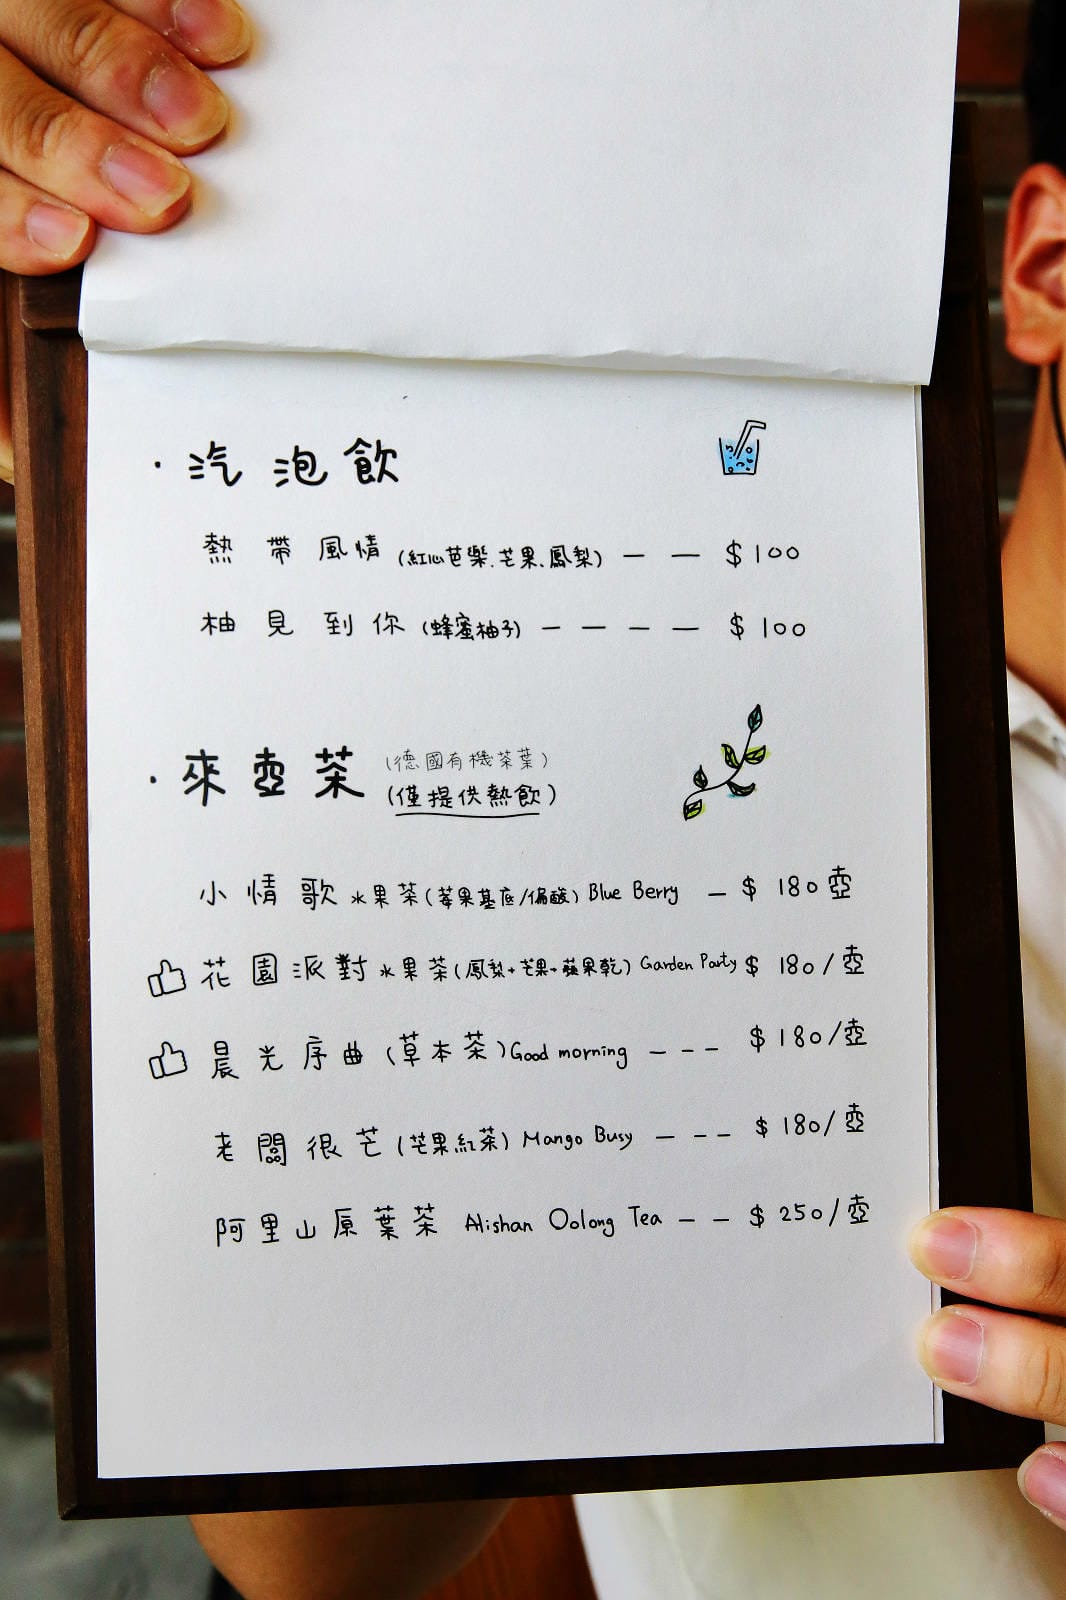 ·汽泡飲
熱帶風情(紅心芭樂、芒果、鳳梨) — — $100
柚見到你(蜂蜜柚子) — — — — $100
·來壺茶(德國有機茶葉)
(僅提供熱飲)
小情歌水果茶(莓果基底/偏酸) Blue Berry — $180壺
花園派對水果茶(鳳梨+芒果+蘋果乾) Garden Party $180/壺
晨光序曲(草本茶)Good morning — — — $180/壺
老闆很芒(芒果紅茶) Mango Busy — — — $180/壺
阿里山原葉茶 Alishan Oolong Tea — — $250/壺